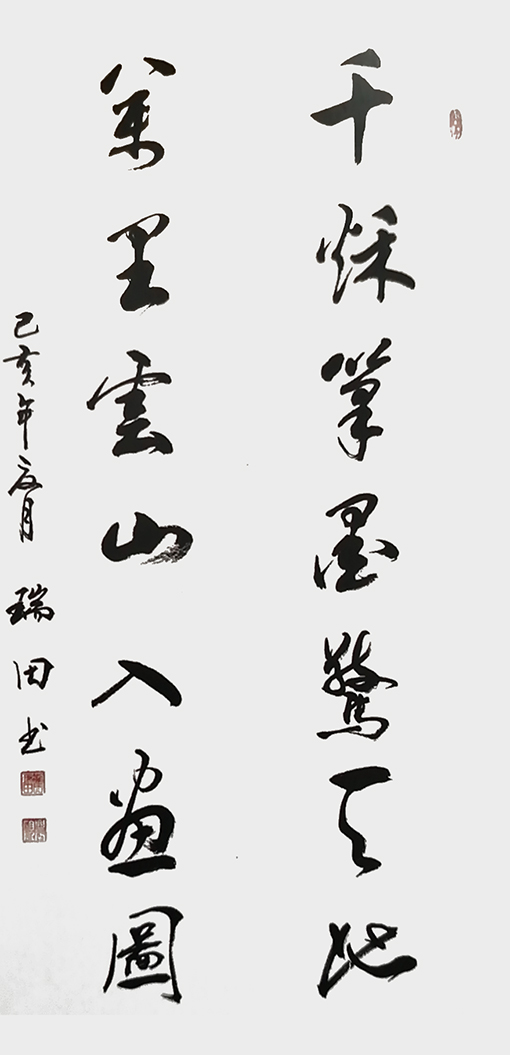 千秌筆墨驚天地
萬里雲山入畫圖
己亥年夏月 瑞田书